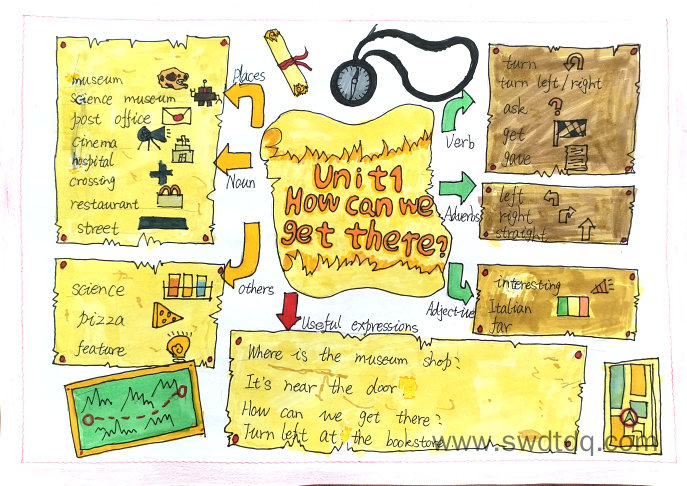 Unit 1
How can we
get there?
Places
Noun
museum
science museum
post office
cinema
hospital
crossing
restaurant
street
others
science
pizza
feature
Verb
turn
turn left/right
ask
get
gave
Adverbs
left
right
straight
Adjective
interesting
Italian
far
Useful expressions
Where is the museum shop?
It's near the door
How can we get there?
Turn left at the bookstore
www.swdtdq.com